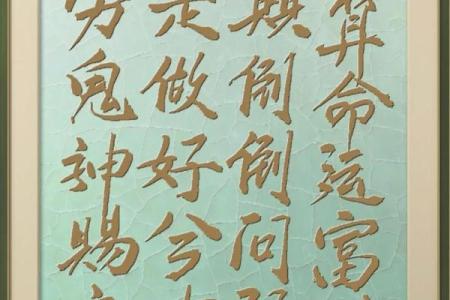 算命运富
颠倒倒问
做好公
鬼神赐